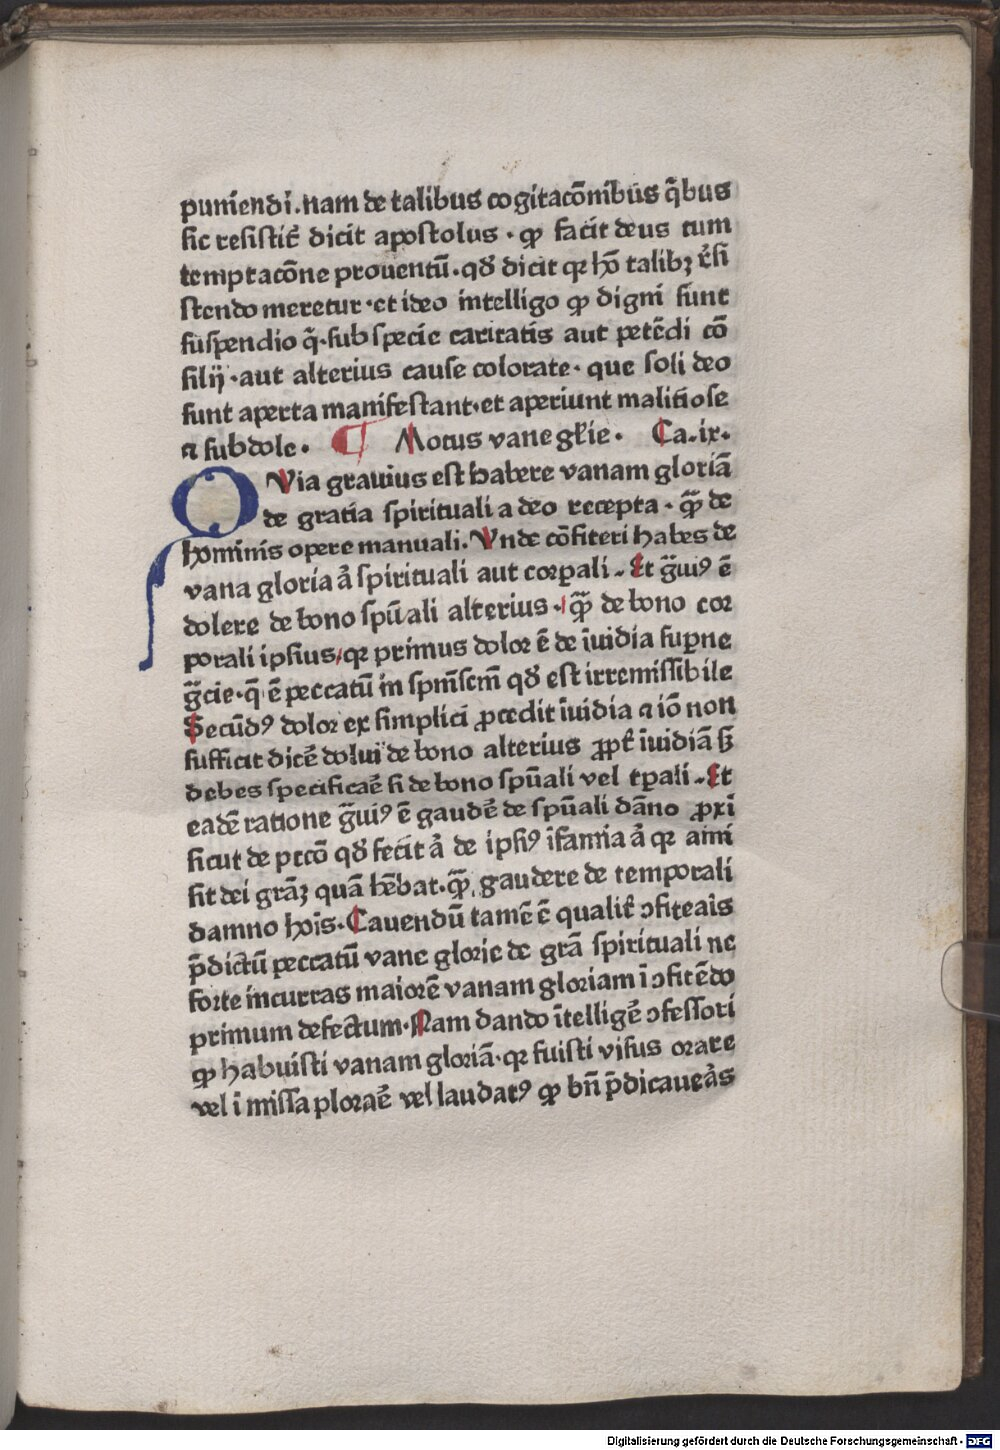 puniendi. nam de talibus cogitacõnibus q̄bus
sic resistit᷑ dicit apostolus · ꝙ facit deus cum
temptacõne prouentū · qd̕ dicit qꝛ hō talibꝫ r̕si
stendo meretur · et ideo intelligo ꝙ digni sunt
suspendio q̄ · sub specie caritatis aut petēdi cō
silij · aut alterius cause colorate · que soli deo
sunt aperta manifestant · et aperiunt malitiose
⁊ subdole. ¶ Motus vane gl̄ie. Ca. ix.
QVia grauius est habere vanam gloriā
de gratia spirituali a deo recepta · q̄ꝫ de
hominis opere manuali. Vnde cōfiteri habes de
vana gloria ā spirituali aut corꝑali. Et g̃uiꝰ ē
dolere de bono spūali alterius · q̄ꝫ de bono cor
porali ipsius / qꝛ primus dolor ē de īuidia suꝑne
g̃cie · q̄ ē peccatū in spm̄scm̄ qd̕ est irremissibile
Secūdꝰ dolor ex simplici ꝓcedit īuidia ⁊ iō non
sufficit dicē dolui de bono alterius ꝓpt̕ īuidiā sꝫ
debes specificaē si de bono spūali vel tꝑali. Et
eadē ratione g̃uiꝰ ē gaudē de spūali dāno ꝓxī
sicut de pctō qd̕ fecit ā de ipsiꝰ īfamia ā qꝛ amī
sit dei grāꝫ quā hēbat · q̄ꝫ gaudere de temporali
damno hoīs. Cauendū tamē ē qualit᷑ ↄfiteaīs
p̄dictū peccatū vane glorie de grā spirituali ne
forte incurras maiorē vanam gloriam ī ↄfitēdo
primum defectum. Nam dando ītelligē ↄfessori
ꝙ habuisti vanam gloriā · qꝛ fuisti visus orare
vel ī missa ploraē vel laudatꝰ ꝙ bn̄ p̄dicaueās
Digitalisierung gefördert durch die Deutsche Forschungsgemeinschaft - DFG